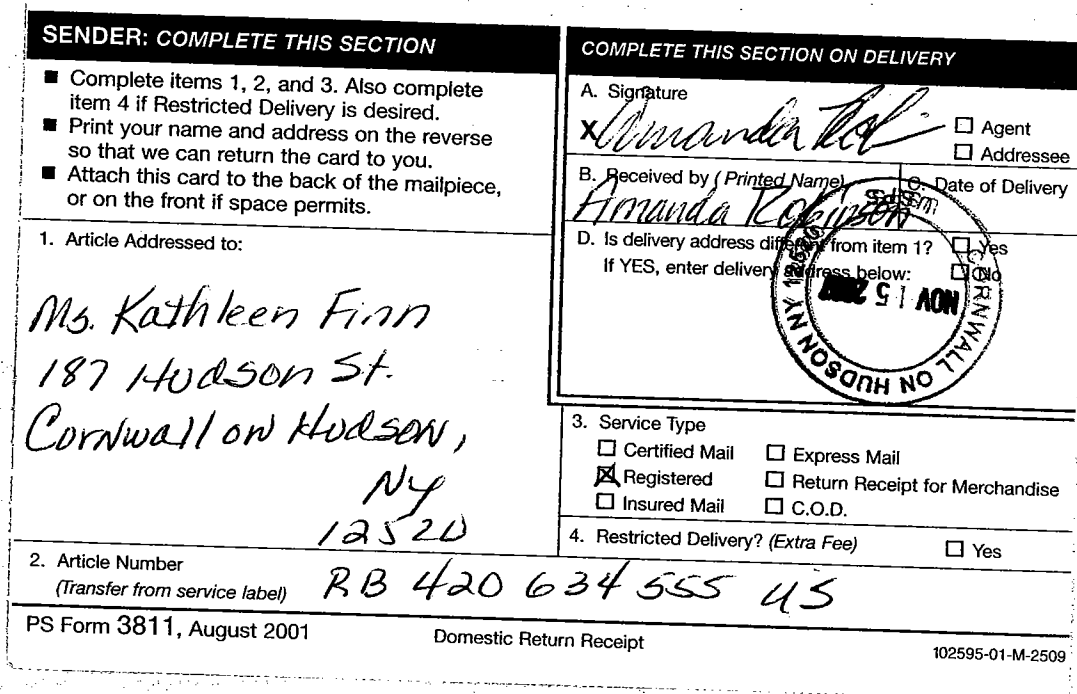 SENDER: COMPLETE THIS SECTION
■ Complete items 1, 2, and 3. Also complete
item 4 if Restricted Delivery is desired.
■ Print your name and address on the reverse
so that we can return the card to you.
■ Attach this card to the back of the mailpiece,
or on the front if space permits.
1. Article Addressed to:
Ms. Kathleen Finn
187 Hudson St.
Cornwall on Hudson,
NY
12520
2. Article Number
(Transfer from service label) RB 420 634 555 US
PS Form 3811, August 2001
Domestic Return Receipt
102595-01-M-2509
COMPLETE THIS SECTION ON DELIVERY
A. Signature
X Amanda
☐ Agent
☐ Addressee
B. Received by (Printed Name)
C. Date of Delivery
Amanda Robinson
D. Is delivery address different from item 1? ☐ Yes
If YES, enter delivery address below: ☐ No
CORNWALL ON HUDSON NY 12520
USPS
NOV 15
3. Service Type
☐ Certified Mail ☐ Express Mail
☒ Registered ☐ Return Receipt for Merchandise
☐ Insured Mail ☐ C.O.D.
4. Restricted Delivery? (Extra Fee) ☐ Yes